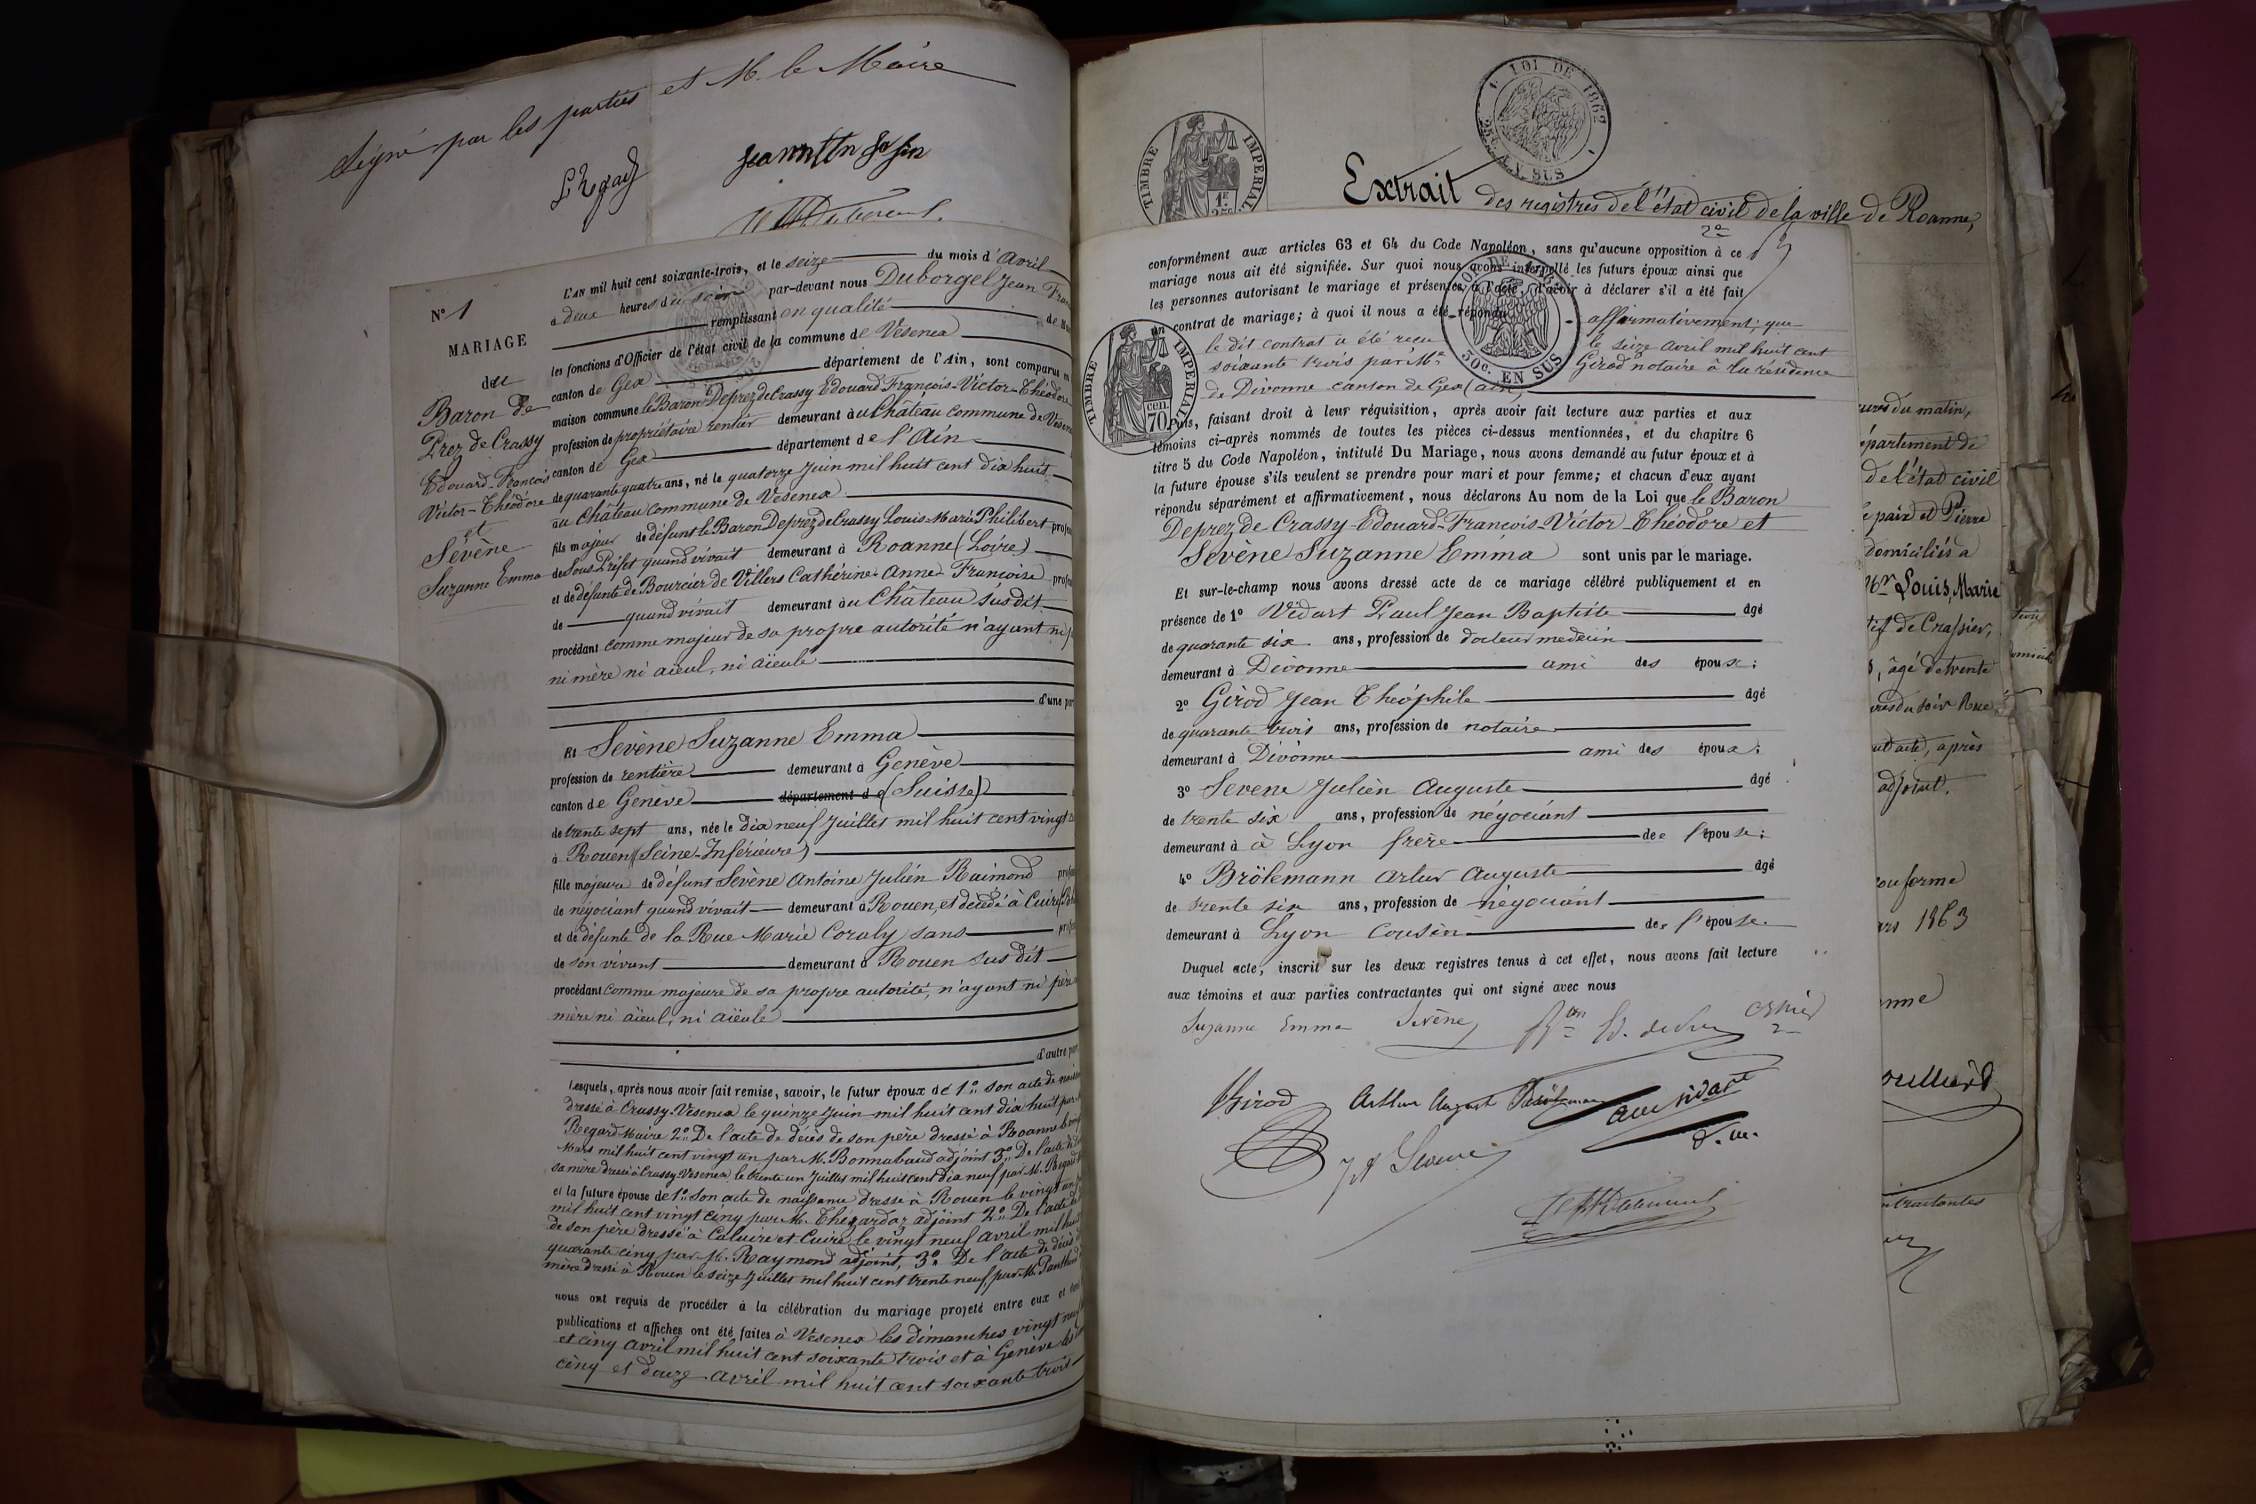 Signé par les parties et M. le Maire
N° 1
MARIAGE
du
Baron de
Prez de Crassy
Edouard-François
Victor-Théodore
et
Sévène
Suzanne Emma
L'AN mil huit cent soixante-trois, et le seize du mois d'Avril
à deux heures du soir par-devant nous Duborgel Jean
remplissant en qualité de
les fonctions d'Officier de l'état civil de la commune de Vesenex
canton de Gex département de l'Ain, sont comparus en
maison commune le Baron Deprez de Crassy Edouard François-Victor-Théodore
profession de propriétaire rentier demeurant au Château commune de
canton de Gex département de l'Ain
de quarante quatre ans, né le quatorze Juin mil huit cent dix huit
au Château commune de Vesenex
fils majeur de défunt le Baron Deprez de Crassy Louis-Marie Philibert
de Sous-Préfet quand vivait demeurant à Roanne (Loire)
et de défunte de Bourcier de Villers Cathérine-Anne-Françoise
de quand vivait demeurant au Château susdit
procédant comme majeur de sa propre autorité n'ayant ni
ni mère ni aïeul, ni aïeule
d'une
Et Sevène Suzanne Emma
profession de rentière demeurant à Genève
canton de Genève département de (Suisse)
de trente sept ans, née le dix neuf Juillet mil huit cent vingt
à Rouen (Seine-Inférieure)
fille majeure de défunt Sevène Antoine Julien Raimond
de négociant quand vivait demeurant à Rouen, et décédé à Cuire
et de défunte de la Rue Marie Coraly sans
de son vivant demeurant à Rouen sus dit
procédant comme majeure de sa propre autorité, n'ayant ni père
mère ni aïeul, ni aïeule
d'autre
Lesquels, après nous avoir fait remise, savoir, le futur époux de 1° son acte de
dressé à Crassy-Vesenex le quinze Juin mil huit cent dix huit par
Regard Maire 2° De l'acte de décès de son père dressé à Roanne le
Mars mil huit cent vingt un par M. Bonnabaud adjoint 3° De l'acte de
sa mère dressé à Crassy-Vesenex le trente un Juillet mil huit cent dix neuf par M. Regard
et la future épouse de 1° Son acte de naissance dressé à Rouen le vingt un
mil huit cent vingt cinq par M. adjoint 2° De l'acte de
de son père dressé à Caluire et Cuire le vingt neuf avril mil huit
quarante cinq par M. Raymond adjoint, 3° De l'acte de décès
mère dressé à Rouen le seize Juillet mil huit cent trente neuf, par M.
nous ont requis de procéder à la célébration du mariage projeté entre eux et
publications et affiches ont été faites à Vesenex les dimanches vingt neuf
et cinq avril mil huit cent soixante trois et à Genève les
cinq et douze avril mil huit cent soixante trois
LOI DE 1862
25c. EN SUS
TIMBRE IMPERIAL
1F.
Extrait des registres de l'état civil de la ville de Roanne,
2e
conformément aux articles 63 et 64 du Code Napoléon, sans qu'aucune opposition à ce
mariage nous ait été signifiée. Sur quoi nous avons interpellé les futurs époux ainsi que
les personnes autorisant le mariage et présentes à l'acte, d'avoir à déclarer s'il a été fait
un contrat de mariage; à quoi il nous a été répondu affirmativement; que
le dit contrat a été reçu le seize avril mil huit cent
soixante trois par Me Girod notaire à la résidence
de Divonne canton de Gex (ain)
30c. EN SUS
TIMBRE IMPERIAL
70 cen.
Puis, faisant droit à leur réquisition, après avoir fait lecture aux parties et aux
témoins ci-après nommés de toutes les pièces ci-dessus mentionnées, et du chapitre 6
titre 5 du Code Napoléon, intitulé Du Mariage, nous avons demandé au futur époux et à
la future épouse s'ils veulent se prendre pour mari et pour femme; et chacun d'eux ayant
répondu séparément et affirmativement, nous déclarons Au nom de la Loi que le Baron
Deprez de Crassy-Edouard-François-Victor-Théodore et
Sevène Suzanne Emma sont unis par le mariage.
Et sur-le-champ nous avons dressé acte de ce mariage célébré publiquement et en
présence de 1° Vidart Paul Jean Baptiste âgé
de quarante six ans, profession de docteur medecin
demeurant à Divonne ami des époux;
2° Girod Jean Théophile âgé
de quarante trois ans, profession de notaire
demeurant à Divonne ami des époux;
3° Sevene Julien Auguste âgé
de trente six ans, profession de négociant
demeurant à à Lyon frère de l'épouse;
4° Brölemann Artur Auguste âgé
de trente six ans, profession de négociant
demeurant à Lyon Cousin de l'épouse.
Duquel acte, inscrit sur les deux registres tenus à cet effet, nous avons fait lecture
aux témoins et aux parties contractantes qui ont signé avec nous
Suzanne Emma Sevène
Girod
Arthur August
heures du matin,
département de
de l'état civil
de paix et Pierre
domiciliés à
Mr Louis, Marie
de Crassier,
âgé de trente
après
adjoint.
conforme
1863